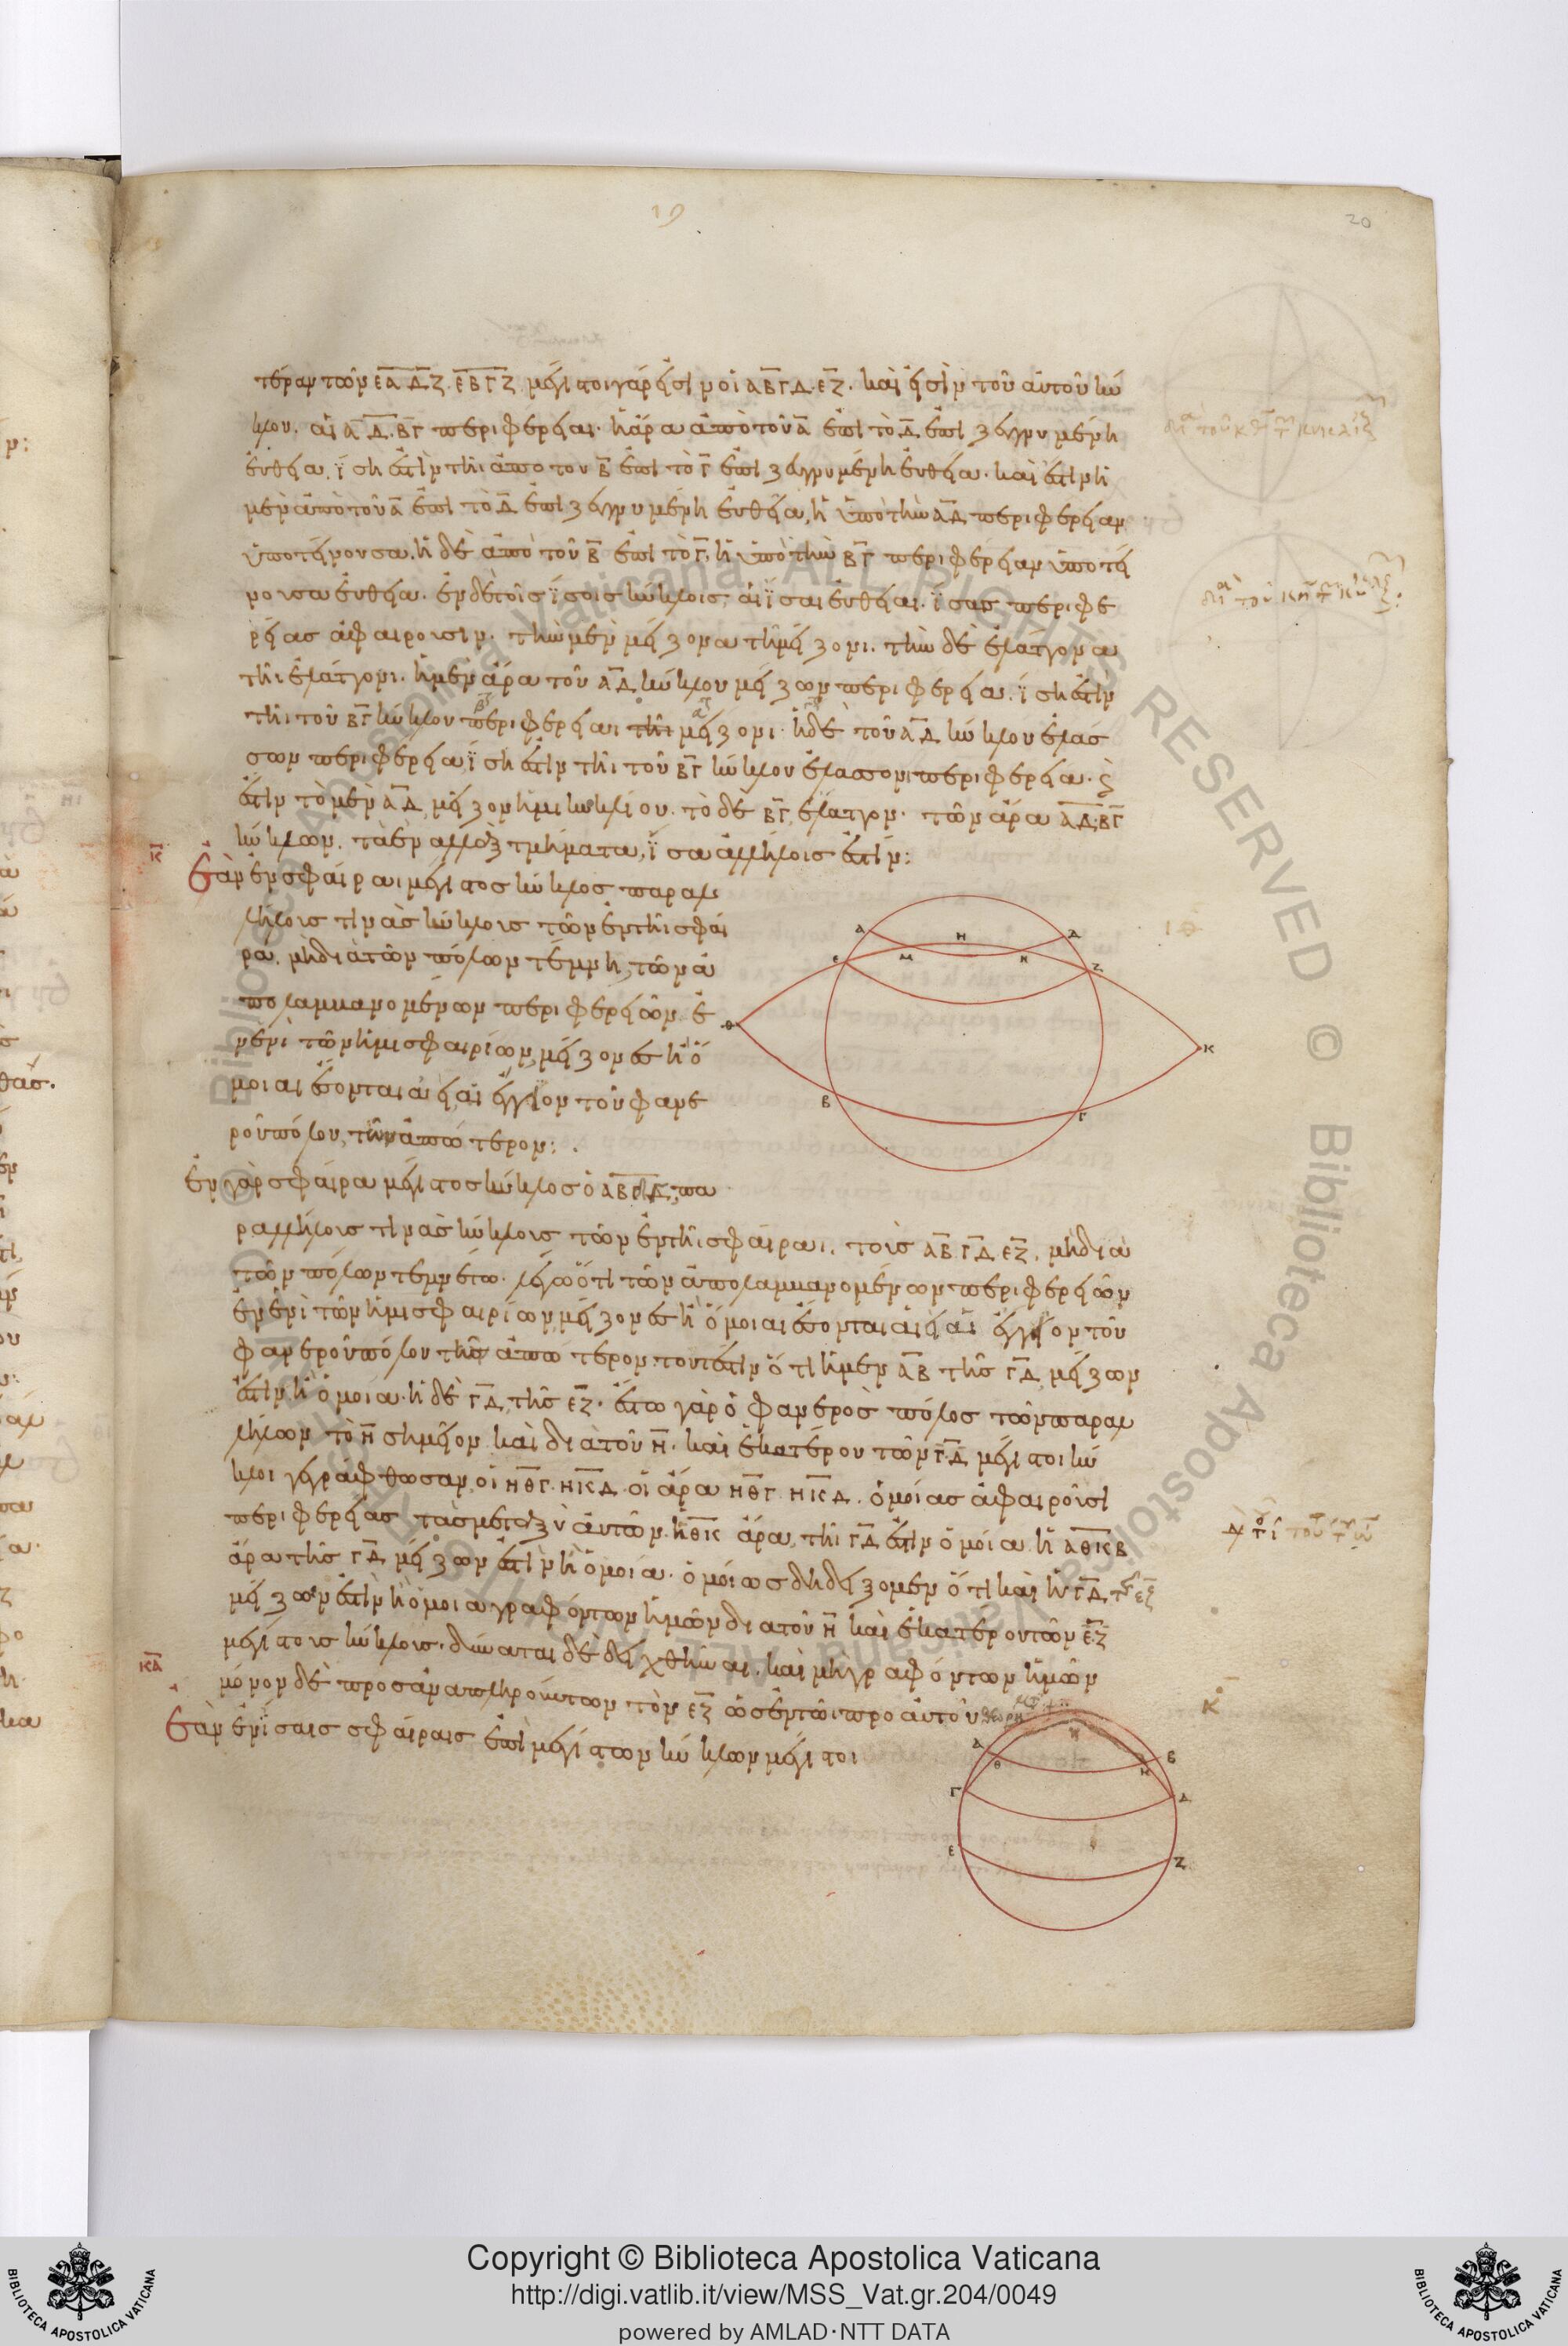 19
20
τέραν τῶν ΕΑ ΔΖ. ΕΒ ΓΖ. μέγιστοι γάρ εἰσιν οἱ ΑΒΓΔ. ΕΖ. καὶ εἰσὶν τοῦ αὐτοῦ κύ
κλου. αἱ ΑΔ. ΒΓ περιφέρειαι. ἡ ἄρα ἀπὸ τοῦ Α ἐπὶ τὸ Δ ἐπιζευγνυμένη
εὐθεῖα, ἴση ἐστὶν τῆι ἀπὸ του Β ἐπὶ τὸ Γ ἐπιζευγνυμένη εὐθεία. καὶ ἐστιν ἡ
μὲν ἀπὸ τοῦ Α ἐπὶ τὸ Δ ἐπιζευγνυμένη εὐθεῖα, ἡ ὑπὸ τὴν ΑΔ περιφέρειαν
ὑποτείνουσα. ἡ δὲ ἀπὸ τοῦ Β ἐπὶ τὸ Γ, ἡ ὑπὸ τὴν ΒΓ περιφέρειαν ὑποτεί
νουσα εὐθεῖα. ἐν δὲ τοῖς ἴσοις κύκλοις, αἱ ἴσαι εὐθεῖαι. ἴσας περιφε
ρείας ἀφαιροῦσιν. τὴν μὲν μείζονα τῆι μείζονι. τὴν δὲ ἐλάττονα
τῆι ἐλάττονι. ἡ μὲν ἄρα τοῦ ΑΔ κύκλου μείζων περιφέρεια. ἴση ἐστὶν
τῆι τοῦ ΒΓ κύκλου περιφερείαι τῆι μείζονι. ἡ δὲ τοῦ ΑΔ κύκλου ἐλάσ
σων περιφέρεια ἴση ἐστὶν τῆι τοῦ ΒΓ κύκλου ἐλάσσονι περιφερεία. ϛ
ἐστὶν τὸ μὲν ΑΔ μεῖζον ἡμικυκλίου. τὸ δὲ ΒΓ, ἔλαττον. τῶν ἄρα ΑΔ. ΒΓ
κύκλων. τὰ ἐναλλὰξ τμήματα, ἴσα ἀλλήλοις ἐστίν:
κ
Ἐὰν ἐν σφαίραι μέγιστος κύκλος παραλ
λήλους τινὰς κύκλους τῶν ἐν τῆι σφαί
ρα. μὴ διὰ τῶν πόλων τέμνη, τῶν ἀ
πολαμβανομένων περιφερειῶν. ἐν
ἑνὶ τῶν ἡμισφαιρίων, μείζονες ἢ ὅ
μοιαι ἔσονται αἰεὶ, αἱ ἔγγιον τοῦ φανε
ροῦ πόλου, τῶν ἀπώτερον:.
Ἐν γὰρ σφαίρα μέγιστος κύκλος ὁ ΑΒΓΔ, πα
ραλλήλους τινὰς κύκλους τῶν ἐν τῆι σφαίραι. τοὺς ΑΒ ΓΔ ΕΖ. μὴ διὰ
τῶν πόλων τεμνέτω. λέγω ὅτι τῶν ἀπολαμβανομένων περιφερειῶν
ἐν ἑνὶ τῶν ἡμισφαιρίων, μείζονες ἢ ὅμοιαι ἔσονται αἰεὶ αἱ ἔγγιον τοῦ
φανεροῦ πόλου τῆς ἀπώτερον. τουτέστιν ὅτι ἡ μὲν ΑΒ τῆς ΓΔ, μείζων
ἐστὶν ἢ ὁμοία. ἡ δὲ ΓΔ, τῆς ΕΖ. ἔστω γὰρ ὁ φανερὸς πόλος τῶν παραλ
λήλων τὸ Η σημεῖον. καὶ διὰ τοῦ Η. καὶ ἑκατέρου τῶν Γ Δ μέγιστοι κύ
κλοι γεγράφθωσαν, οἱ ΗΘΓ. ΗΚΔ. οἱ ἄρα ΗΘΓ. ΗΚΔ. ὁμοίας ἀφαιροῦσι
περιφερείας τὰς μεταξὺ αὐτῶν. ἡ ΘΚ ἄρα, τῆι ΓΔ ἐστὶν ὁμοία. ἡ ΑΘΚΒ
ἄρα τῆς ΓΔ μείζων ἐστὶν ἢ ὁμοία. ὁμοίως δὴ δείξομεν ὅτι καὶ ἡ ΓΔ, τῆς ΕΖ
μείζων ἐστὶν ἢ ὁμοία γραφόντων ἡμῶν δια τοῦ Η καὶ ἑκατέρου τῶν Ε. Ζ
μεγίστους κύκλους. δύναται δὲ δειχθῆναι, καὶ μὴ γραφόντων ἡμῶν
μόνον δὲ προσαναπληρούντων τὸν ΕΖ ὡς ἐν τῶι προ αὐτοῦ
κα
Ἐὰν ἐν ἴσαις σφαίραις ἐπὶ μεγίστων κύκλων μέγιστοι
Α Η Δ
Ε Μ Ν Ζ
Θ Κ
Β Γ
ιθ
κ
Η
Α Θ Κ Β
Γ Δ
Ε Ζ
Copyright © Biblioteca Apostolica Vaticana
http://digi.vatlib.it/view/MSS_Vat.gr.204/0049
powered by AMLAD·NTT DATA
BIBLIOTECA APOSTOLICA VATICANA
BIBLIOTECA APOSTOLICA VATICANA